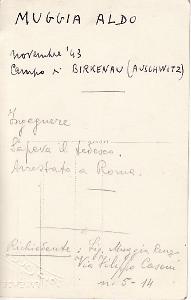 MUGGIA ALDO
novembre '43
Campo di BIRKENAU (AUSCHWITZ)
Ingegnere
Sapeva il tedesco.
Arrestato a Roma.
Richiedente: Sig. Muggia Renzo
Via Filippo Casoni
n. 5-14